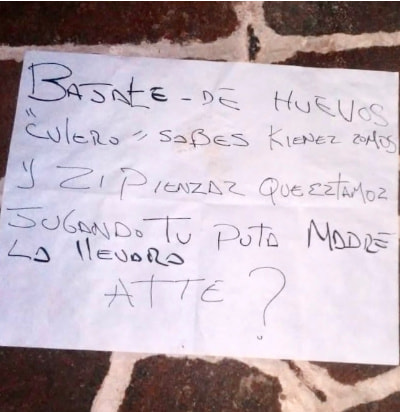 BAJALE - DE HUEVOS
"CULERO" SABES KIENEZ ZOMOS
Y ZI PIENZAZ QUE EZTAMOZ
JUGANDO TU PUTA MADRE
LA llEVARA
ATTE ?